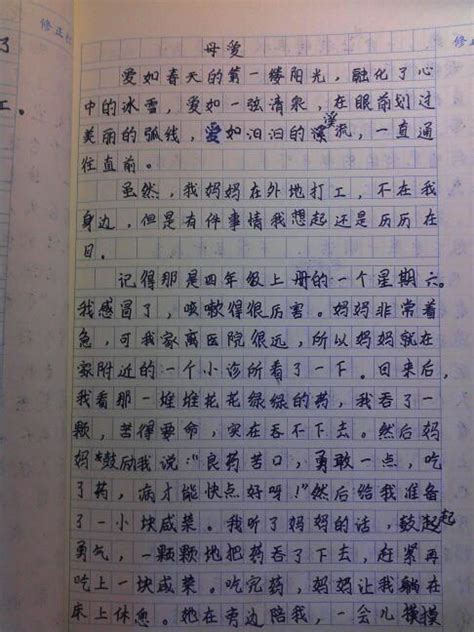 修正栏
了
修正
母爱
爱如春天的第一缕阳光，融化了心
中的冰雪，爱如一弦清泉，在眼前划过
美丽的弧线，爱如汩汩的溪流，一直通
往直前。
工。
虽然，我妈妈在外地打工，不在我
身边，但是有件事情我想起还是历历在
目。
记得那是四年级上册的一个星期六。
我感冒了，咳嗽得很厉害。妈妈非常着
急，可我家离医院很远，所以妈妈就在
家附近的一个小诊所看了一下。回来后，
我看那一堆堆花花绿绿的药，我吞了一
颗，苦得要命，实在吞不下去。然后妈
妈鼓励我说："良药苦口，勇敢一点，吃
了药，病才能快点好呀！"然后给我准备
了一小块咸菜。我听了妈妈的话，鼓起
勇气，一颗颗地把药吞了下去，赶紧再
吃上一块咸菜。吃完药，妈妈让我躺在
床上休息。她在旁边陪我，一会儿摸摸